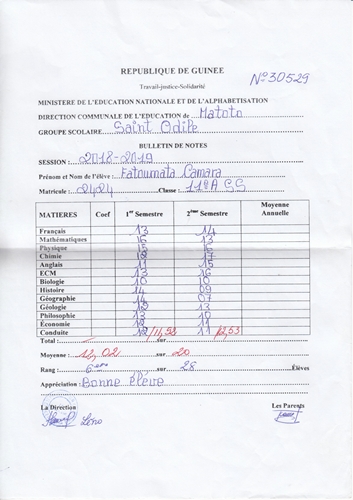 REPUBLIQUE DE GUINEE
Travail-justice-Solidarité
N° 30529
MINISTERE DE L'EDUCATION NATIONALE ET DE L'ALPHABETISATION
DIRECTION COMMUNALE DE L'EDUCATION de Matoto
GROUPE SCOLAIRE Saint Odile
BULLETIN DE NOTES
SESSION : 2018-2019
Prénom et Nom de l'élève : Fatoumata Camara
Matricule : 2424 Classe : 11è A SS
MATIERES Coef 1er Semestre 2ème Semestre Moyenne Annuelle
Français 13 14
Mathématiques 16 13
Physique 15 16
Chimie 12 17
Anglais 11 15
ECM 13 16
Biologie 10 10
Histoire 14 09
Géographie 14 07
Géologie 12 13
Philosophie 13 10
Economie 12 11
Conduite 12 /11,52 11 12,53
Total : sur
Moyenne : 12,02 sur 20
Rang : 6ème sur 28 Élèves
Appréciation : Bonne élève
La Direction Les Parents